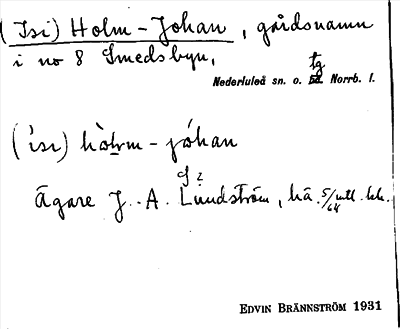 (Isi) Holm-Johan, gårdsnamn
i no 8 Smedsbyn,
Nederluleå sn. o. tg Norrb. l.
(ìsi) hòlm-jóhan
Ägare J. A. Lundström, hä.
EDVIN BRÄNNSTRÖM 1931